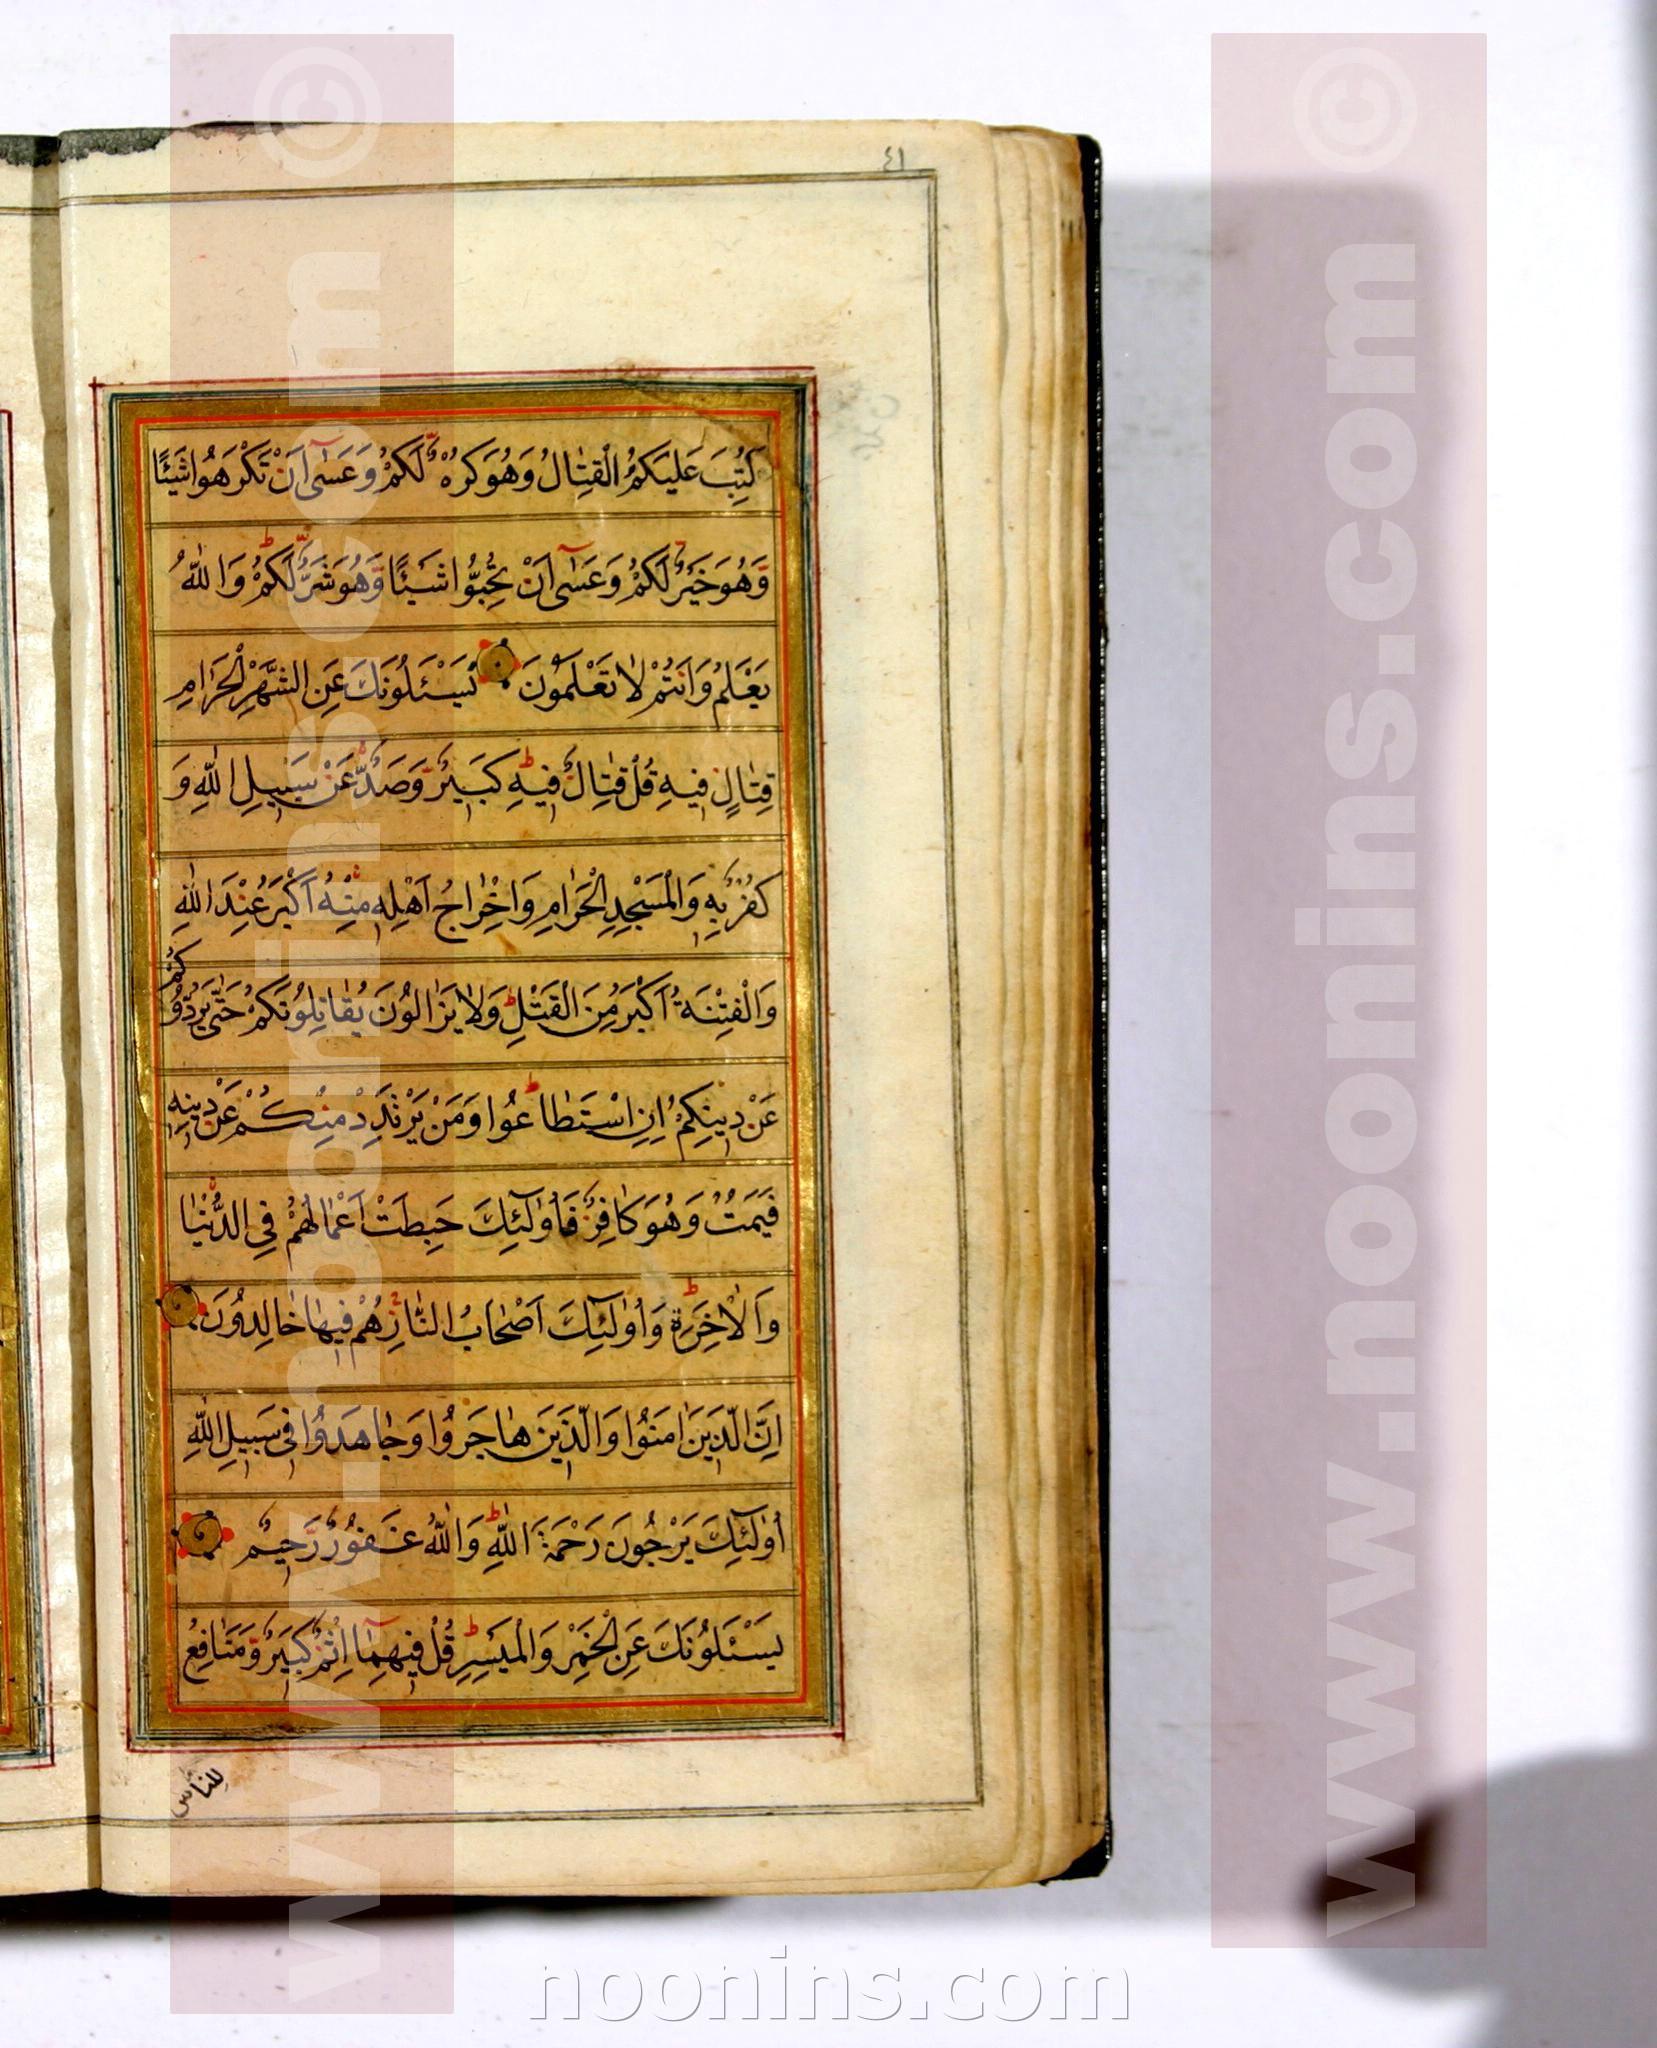 ٤١
كُتِبَ عَلَيْكُمُ الْقِتٰالُ وَهُوَ كُرْهٌ لَكُمْ وَعَسٰٓى اَنْ تَكْرَهُوا شَيْئًا
وَهُوَ خَيْرٌ لَكُمْ وَعَسٰٓى اَنْ تُحِبُّوا شَيْئًا وَهُوَ شَرٌّ لَكُمْ وَاللّٰهُ
يَعْلَمُ وَاَنْتُمْ لٰا تَعْلَمُونَ يَسْئَلُونَكَ عَنِ الشَّهْرِ الْحَرٰامِ
قِتٰالٍ فِيهِ قُلْ قِتٰالٌ فِيهِ كَبِيرٌ وَصَدٌّ عَنْ سَبِيلِ اللّٰهِ وَ
كُفْرٌ بِهِ وَالْمَسْجِدِ الْحَرٰامِ وَاِخْرٰاجُ اَهْلِهِ مِنْهُ اَكْبَرُ عِنْدَ اللّٰهِ
وَالْفِتْنَةُ اَكْبَرُ مِنَ الْقَتْلِ وَلٰا يَزٰالُونَ يُقٰاتِلُونَكُمْ حَتّٰى يَرُدُّوكُمْ
عَنْ دِينِكُمْ اِنِ اسْتَطٰاعُوا وَمَنْ يَرْتَدِدْ مِنْكُمْ عَنْ دِينِهِ
فَيَمُتْ وَهُوَ كٰافِرٌ فَاُولٰٓئِكَ حَبِطَتْ اَعْمٰالُهُمْ فِي الدُّنْيٰا
وَالْاٰخِرَةِ وَاُولٰٓئِكَ اَصْحٰابُ النّٰارِ هُمْ فِيهٰا خٰالِدُونَ
اِنَّ الَّذِينَ اٰمَنُوا وَالَّذِينَ هٰاجَرُوا وَجٰاهَدُوا فِي سَبِيلِ اللّٰهِ
اُولٰٓئِكَ يَرْجُونَ رَحْمَةَ اللّٰهِ وَاللّٰهُ غَفُورٌ رَحِيمٌ
يَسْئَلُونَكَ عَنِ الْخَمْرِ وَالْمَيْسِرِ قُلْ فِيهِمٰٓا اِثْمٌ كَبِيرٌ وَمَنٰافِعُ
لِلنّاسِ
www.noonins.com ©
www.noonins.com ©
noonins.com